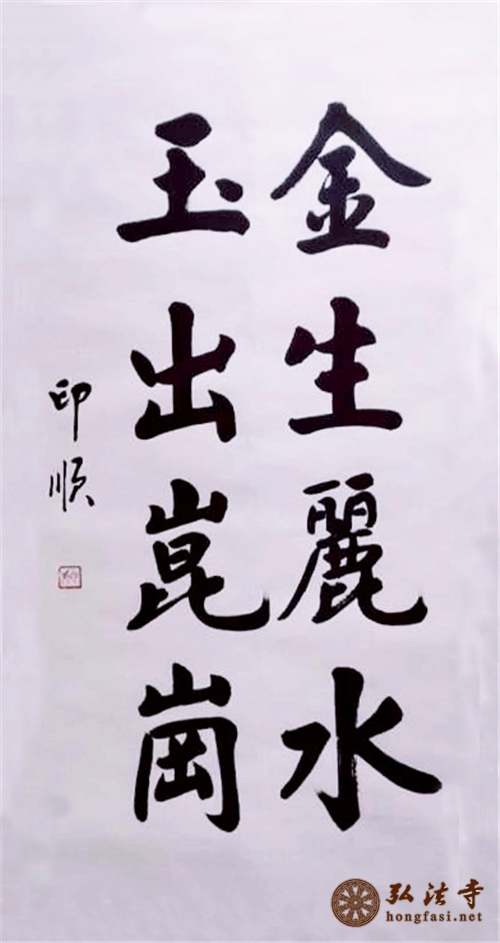 金生麗水
玉出崑崗
印順
弘法寺
hongfasi.net